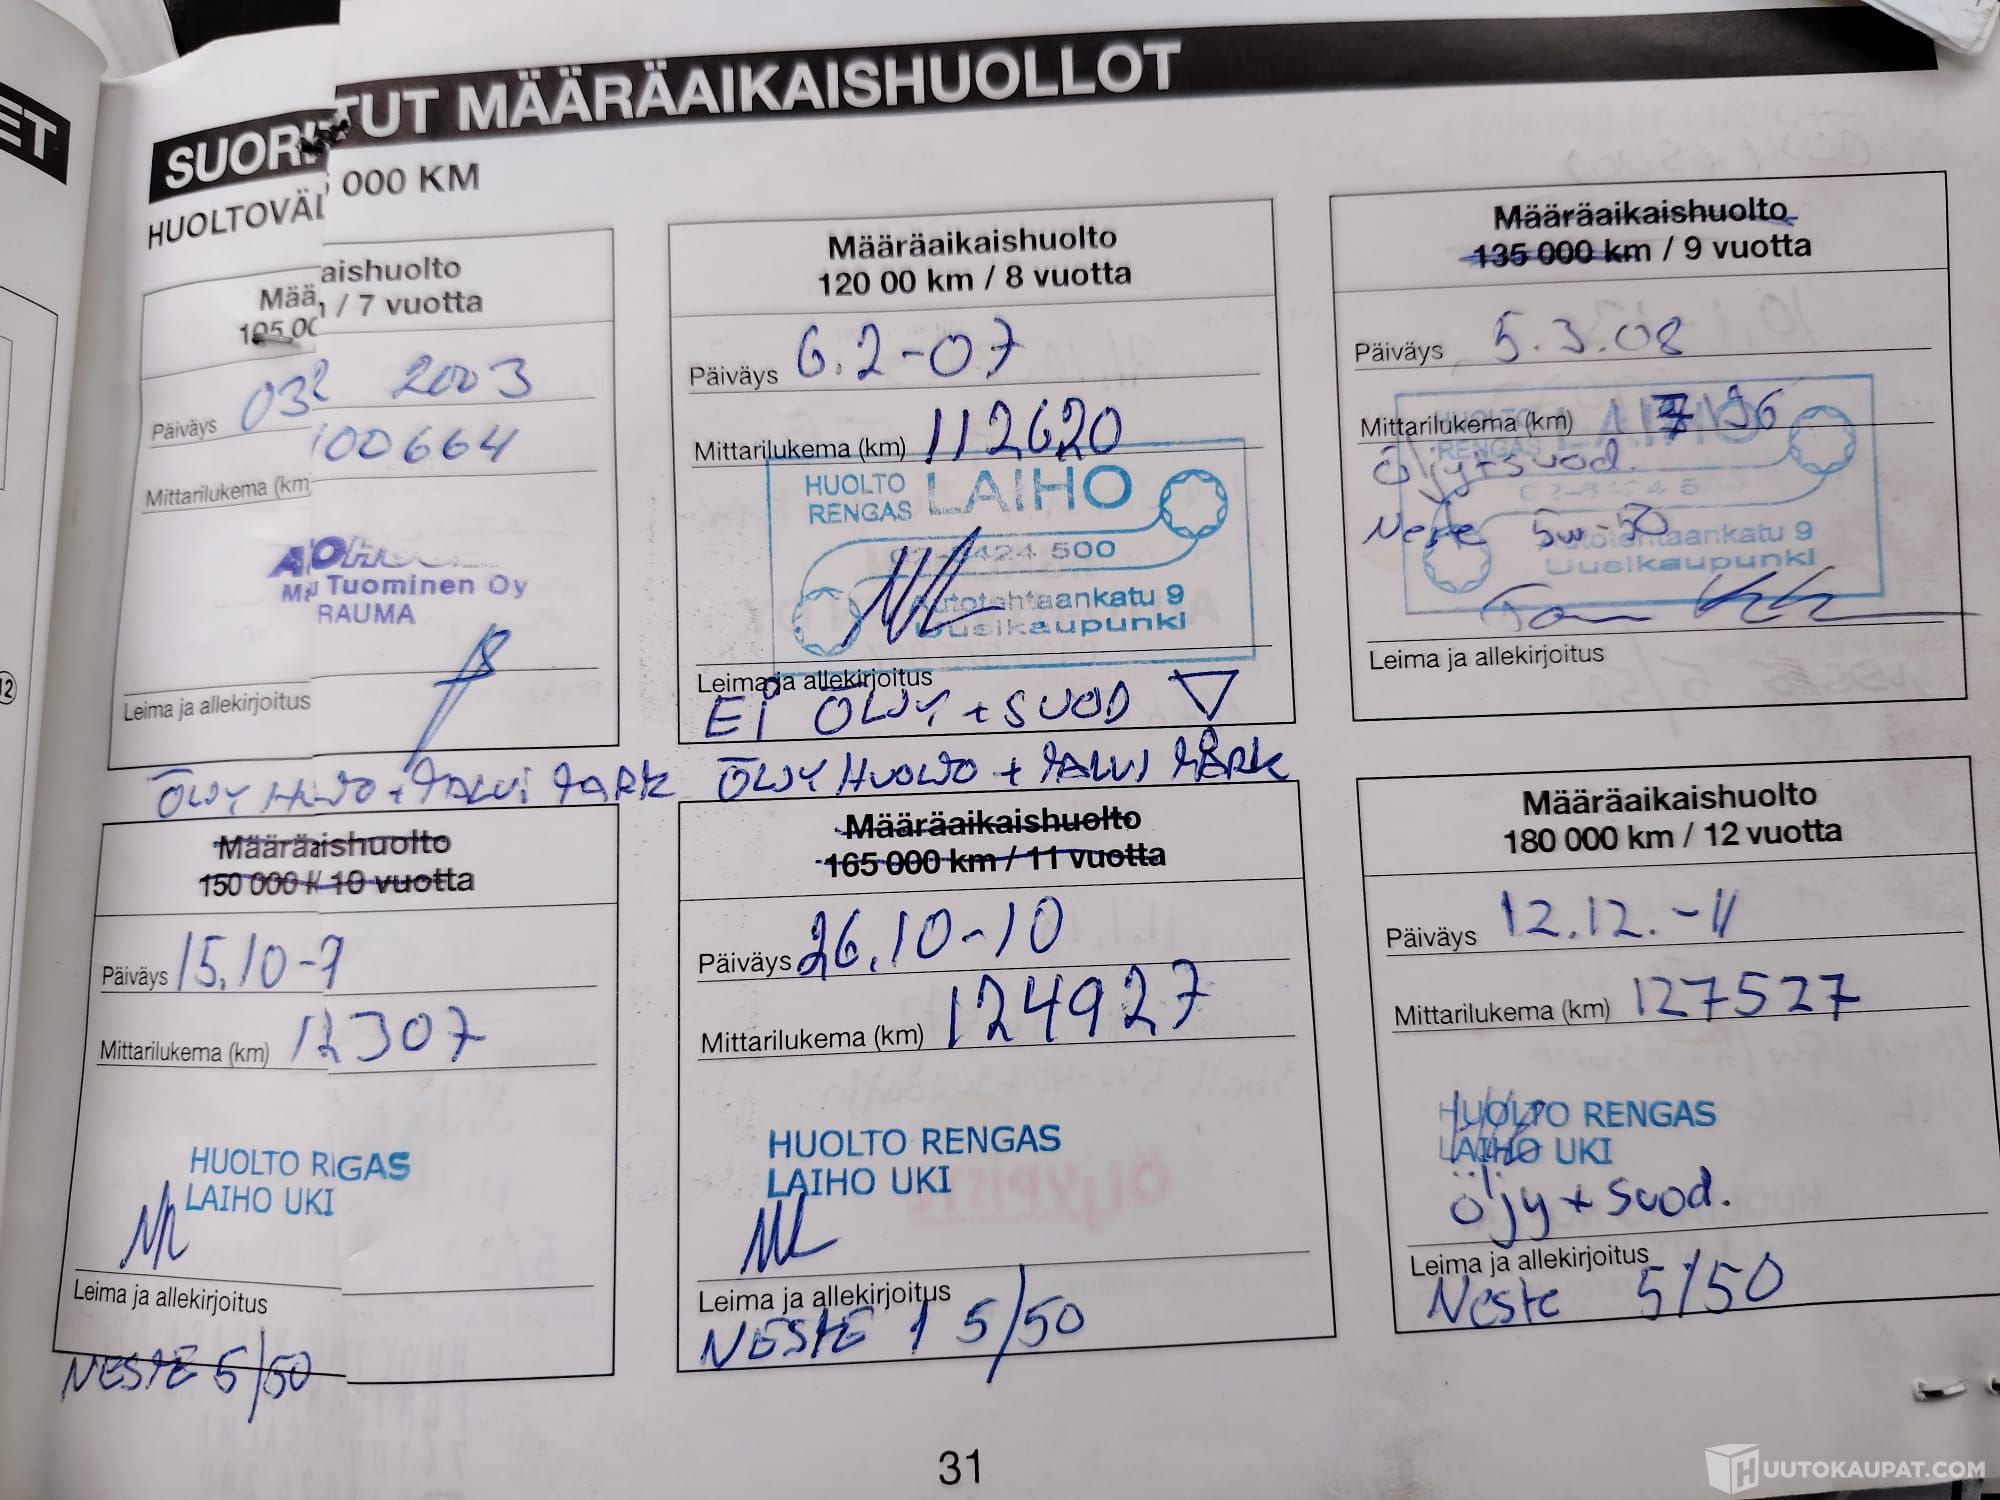 ET
SUORITUT MÄÄRÄAIKAISHUOLLOT
HUOLTOVÄL 000 KM
Määaishuolto
105 00 / 7 vuotta
Päiväys 2003
100664
Mittarilukema (km
Tuominen Oy
RAUMA
Leima ja allekirjoitus
ÖLJY HUOLTO + TALVI TARK
Määräaikaishuolto
120 00 km / 8 vuotta
Päiväys 6.2-07
Mittarilukema (km) 112620
HUOLTO RENGAS LAIHO
424 500
Autotehtaankatu 9
Uusikaupunki
Leima ja allekirjoitus
EI ÖLJY + SUOD
ÖLJY HUOLTO + TALVI TARK
Määräaikaishuolto
135 000 km / 9 vuotta
Päiväys 5.3.08
Mittarilukema (km)
HUOLTO RENGAS LAIHO
Öljy+suod.
Neste 5w-50
Autotehtaankatu 9
Uusikaupunki
Leima ja allekirjoitus
Määräaishuolto
150 000 10 vuotta
Päiväys 15.10-9
Mittarilukema (km) 12307
HUOLTO RGAS
LAIHO UKI
Leima ja allekirjoitus
NESTE 5/50
Määräaikaishuolto
165 000 km / 11 vuotta
Päiväys 26.10-10
Mittarilukema (km) 124927
HUOLTO RENGAS
LAIHO UKI
Leima ja allekirjoitus
NESTE 1 5/50
Määräaikaishuolto
180 000 km / 12 vuotta
Päiväys 12.12.-11
Mittarilukema (km) 127527
HUOLTO RENGAS
LAIHO UKI
Öljy + suod.
Leima ja allekirjoitus
Neste 5/50
12
31
HUUTOKAUPAT.COM